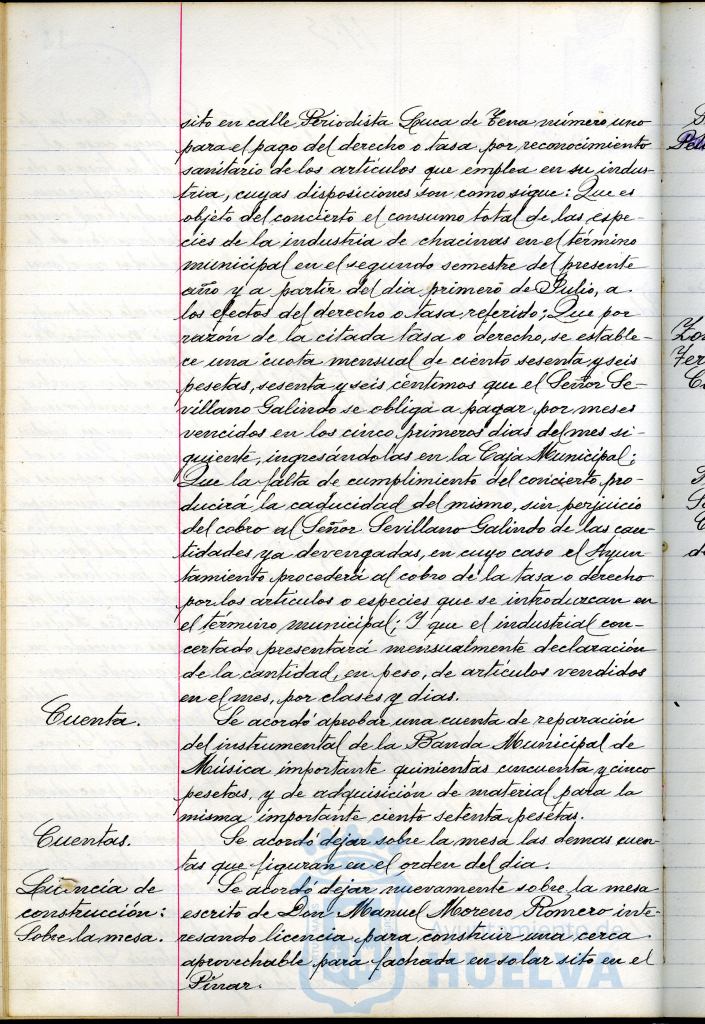 sito en calle Periodista Luca de Tena número, uno
para el pago del derecho o tasa, por reconocimiento
sanitario de los artículos que emplea en su indus-
tria, cuyas disposiciones son como sigue: Que es
objeto del concierto el consumo total de las espe-
cies de la industria de chacinas en el término
municipal en el segundo semestre del presente
año y a partir del dia primero de Julio, a
los efectos del derecho o tasa referido; Que por
razón de la citada tasa o derecho, se estable-
ce una cuota mensual de ciento sesenta y seis
pesetas, sesenta y seis céntimos que el Señor Se-
villano Galindo se obliga a pagar por meses
vencidos en los cinco primeros dias del mes si-
guiente, ingresándolas en la Caja Municipal;
Que la falta de cumplimiento del concierto pro-
ducirá la caducidad del mismo, sin perjuicio
del cobro al Señor Sevillano Galindo de las can-
tidades ya devengadas, en cuyo caso el Ayun-
tamiento procederá al cobro de la tasa o derecho
por los artículos o especies que se introduzcan en
el término municipal; Y que el industrial con-
certado presentará mensualmente declaración
de la cantidad, en peso, de artículos vendidos
en el mes, por clases y dias.
Cuenta.
Se acordó aprobar una cuenta de reparación
del instrumental de la Banda Municipal de
Música importante quinientas cincuenta y cinco
pesetas, y de adquisición de material para la
misma importante ciento setenta pesetas.
Cuentas.
Se acordó dejar sobre la mesa las demas cuen-
tas que figuran en el orden del dia.
Licencia de
construcción:
Sobre la mesa.
Se acordó dejar nuevamente sobre la mesa
escrito de Don Manuel Moreno Romero inte-
resando licencia para construir una cerca
aprovechable para fachada en solar sito en el
Pinar.
Ayuntamiento de
HUELVA